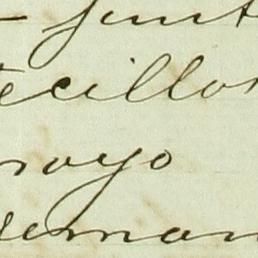 - Junt
ecillos
royo
ernan